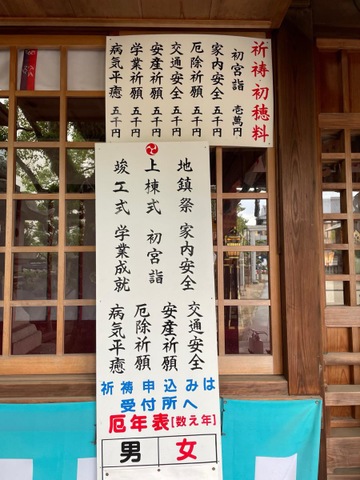 祈祷初穂料
初宮詣 壱萬円
家内安全 五千円
厄除祈願 五千円
交通安全 五千円
安産祈願 五千円
学業祈願 五千円
病気平癒 五千円
地鎮祭 家内安全 交通安全
上棟式 初宮詣 安産祈願
竣工式 学業成就 厄除祈願
病気平癒
祈祷申込みは
受付所へ
厄年表[数え年]
男 女